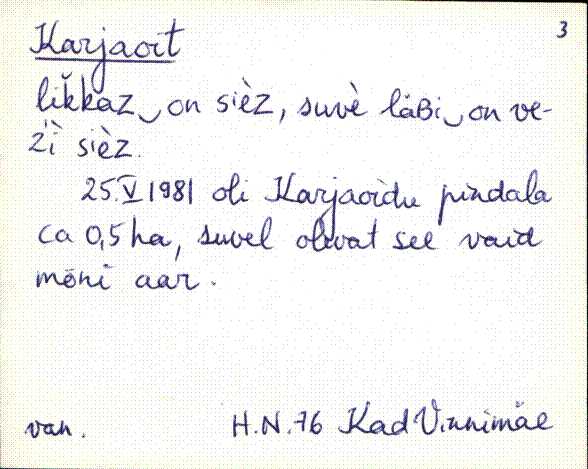 3
Karjaoit
lik̆kaz‿on sièz, suvè läʙi‿on ve-
z'ì sièz.
25.V 1981 oli Karjaoidu pindala
ca 0,5 ha, suvel olevat see vaid
mõni aar.
van. H.N. 76 Kad Vinnimäe